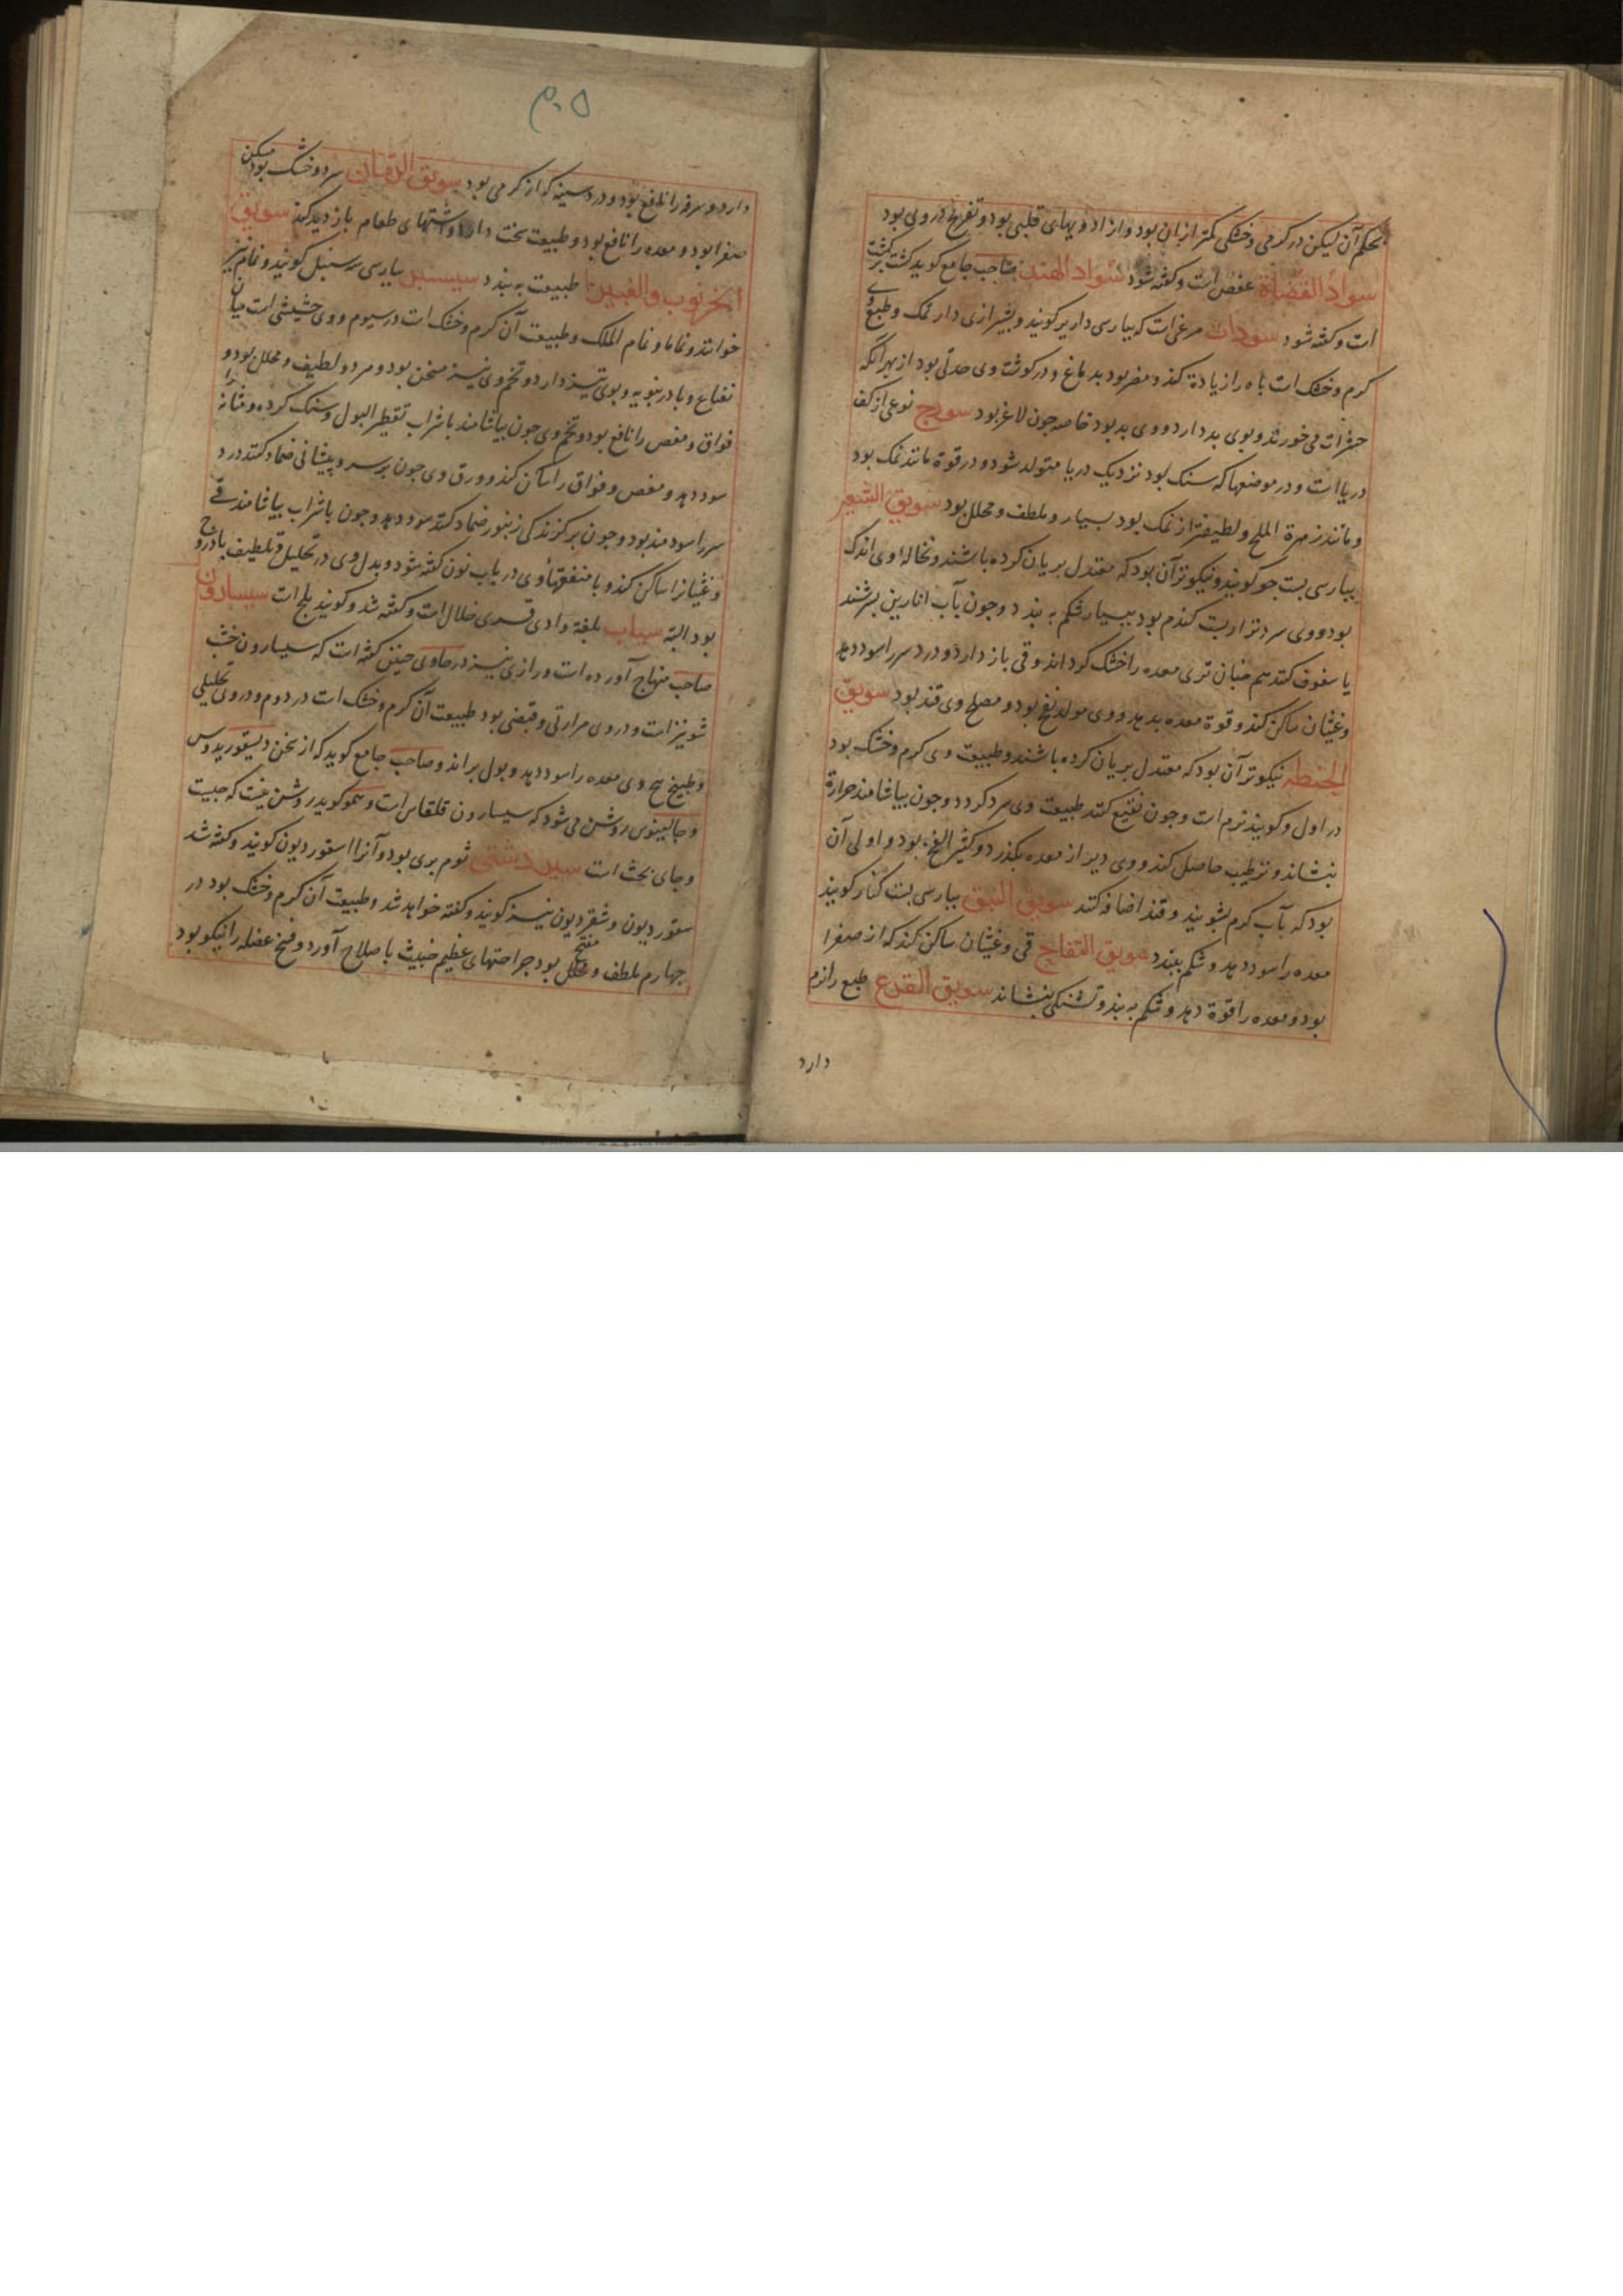 بحکم آن لیکن در گرمی و خشکی کمتر ازان بود و از ادویهای قلبی بود و تفریح در وی بود
سواد القضاة عفص است و گفته شود سواد الهند صاحب جامع گوید کشت برکشت
است و گفته شود سودان مرغی است که بپارسی دار بر گویند و بشیرازی دارنمک و طبع وی
گرم و خشک است باه را زیادة کند و مضر بود بدماغ و در گوشت وی حدتی بود از بهر آنکه
حشرات می خورند و بوی بد دارد و وی بد بود خاصه چون لاغر بود سورج نوعی از کف
دریا است و در موضعها که سنک بود نزدیک دریا متولد شود و در قوة مانند نمک بود
و مانند زهرة الملح و لطیفتر از نمک بود بسیار و ملطف و محلل بود سویق الشعیر
بپارسی بست جو گویند و نیکوترین آن بود که معتدل بریان کرده باشند و نخاله وی اندک
بود و وی سردتر از بست کندم بود ببسیار شکم ببندد و چون بآب انارین بسرشند
یا سفوف کنند هم چنان تری معده را خشک گرداند و قی باز دارد و درد سر را سود دهد
و غثیان ساکن کند و قوة معده بدهد و وی مولد نفخ بود و مصلح وی قند بود سویق
الحنطه نیکوتر آن بود که معتدل بریان کرده باشند و طبیعت وی گرم و خشک بود
در اول و گویند نرم است و چون نقیع کنند طبیعت وی سرد گردد و چون بیاشامند حرارة
بنشاند و ترطیب حاصل کند و وی دیر از معده بگذرد و کثیر النفخ بود و اولی آن
بود که بآب گرم بشویند و قند اضافه کنند سویق النبق بپارسی بست کنار گویند
معده را سود دهد و شکم ببندد سویق التفاح قی و غثیان ساکن کند که از صفرا
بود و معده را قوة دهد و شکم به بندد و تشنکی بنشاند سویق القرع طبع را نرم
دارد
۵۰۲
دارد و سرفه را نافع بود و درد سینه که از گرمی بود سویق الرمان سرد و خشک بود مسکن
صفرا بود و معده را نافع بود و طبیعت سخت دارد و اشتهای طعام باز دید کند سویق
الخرنوب والغبیرا طبیعت به بندد سیسنبر بپارسی سرسنبل گویند و نمام نیز
خوانند و نماما و نمام الملک و طبیعت آن گرم و خشک است در سیوم و وی حشیشی است میان
نعناع و بادرنبویه و بوی تیز دارد و تخم وی نیز مسخن بود و مردو لطیف و محلل بود و
فواق و مغص را نافع بود و تخم وی چون بیاشامند با شراب تقطیر البول و سنک کرده و مثانه را
سود دهد و مغص و فواق را ساکن کند و ورق وی چون بر سر و پیشانی ضماد کنند درد
سر را سودمند بود و چون بر گزندگی زنبور ضماد کنند سود دهد و چون با شراب بیاشامند قی
و غثیانرا ساکن کند و با منفعتهای وی در باب نون گفته شود و بدل وی در تحلیل و تلطیف بادروج
بود البته سیاب بلغة وادی قسری خلال است و گفته شد و گویند بلح است سیسارون
صاحب منهاج آورده است و رازی نیز در حاوی چنین گفته است که سیسارون خشب
شونیز است و در وی مرارتی و قبضی بود طبیعت آن گرم و خشک است در دوم و در وی تحلیلی
و طبیخ بیخ وی معده را سود دهد و بول براند و صاحب جامع گوید که از سخن دیسقوریدوس
و جالینوس روشن می شود که سیسارون قلقاس است و سمو گوید روشن نیست که چیست
و جای بحث است سیر دشتی ثوم بری بود و آنرا اسقوردیون گویند و گفته شد
سقوردیون و شقردیون نیز گویند و گفته خواهد شد و طبیعت آن گرم و خشک بود در
چهارم ملطف و محلل مفتح بود جراحتهای عظیم خبیث با صلاح آورد و فسخ عضله را نیکو بود